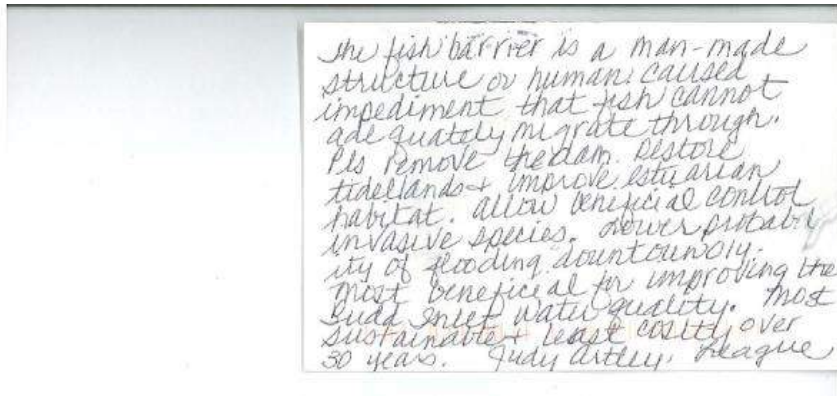 The fish barrier is a man-made
structure or human caused
impediment that fish cannot
adequately migrate through.
Pls remove the dam. Restore
tidelands & improve estuarian
habitat. allow beneficial control
invasive species. Lower probabil
ity of flooding downtown oly.
most beneficial for improving the
Budd Inlet water quality. most
sustainable & least costly over
30 years. Judy Artley, League